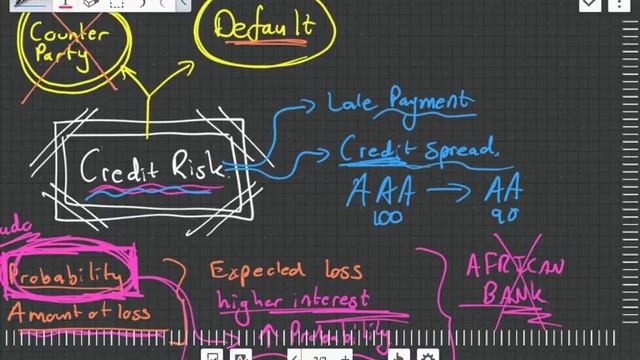 Counter
Party
Default
Late Payment
Credit Risk
Credit Spread
AAA → AA
100 90
Probability
Amount of loss
Expected loss
higher interest
↑ Probability
AFRICAN
BANK
2/2